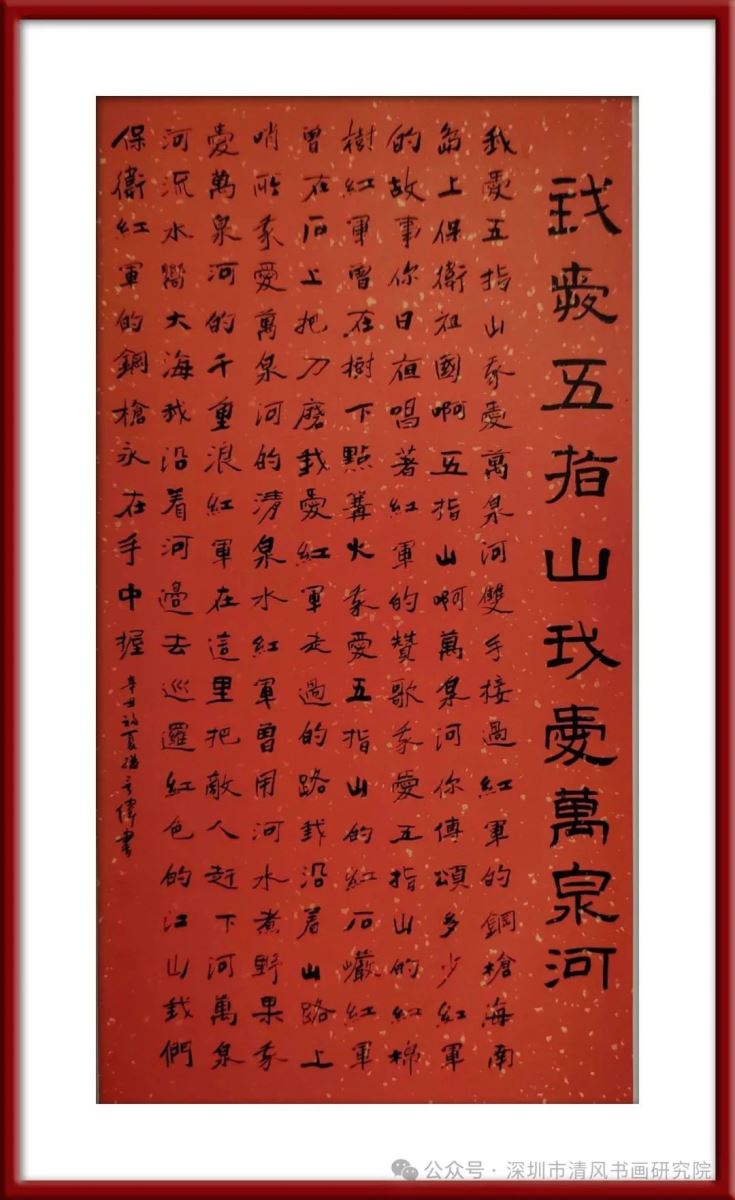 我愛五指山我愛萬泉河
我愛五指山我愛萬泉河雙手接過紅軍的鋼槍海南
島上保衛祖國啊五指山啊萬泉河你傳頌多少紅軍
的故事你日夜唱著紅軍的贊歌我愛五指山的紅棉
樹紅軍曾在樹下點篝火我愛五指山的紅石巖紅軍
曾在石上把刀磨我愛紅軍走過的路我沿着山路上
哨所我愛萬泉河的清泉水紅軍曾用河水煮野果我
愛萬泉河的千重浪紅軍在這里把敵人赶下河萬泉
河流水嚮大海我沿着河邊去巡邏紅色的江山我們
保衛紅軍的鋼槍永在手中握
辛丑初夏偉書
公众号·深圳市清风书画研究院